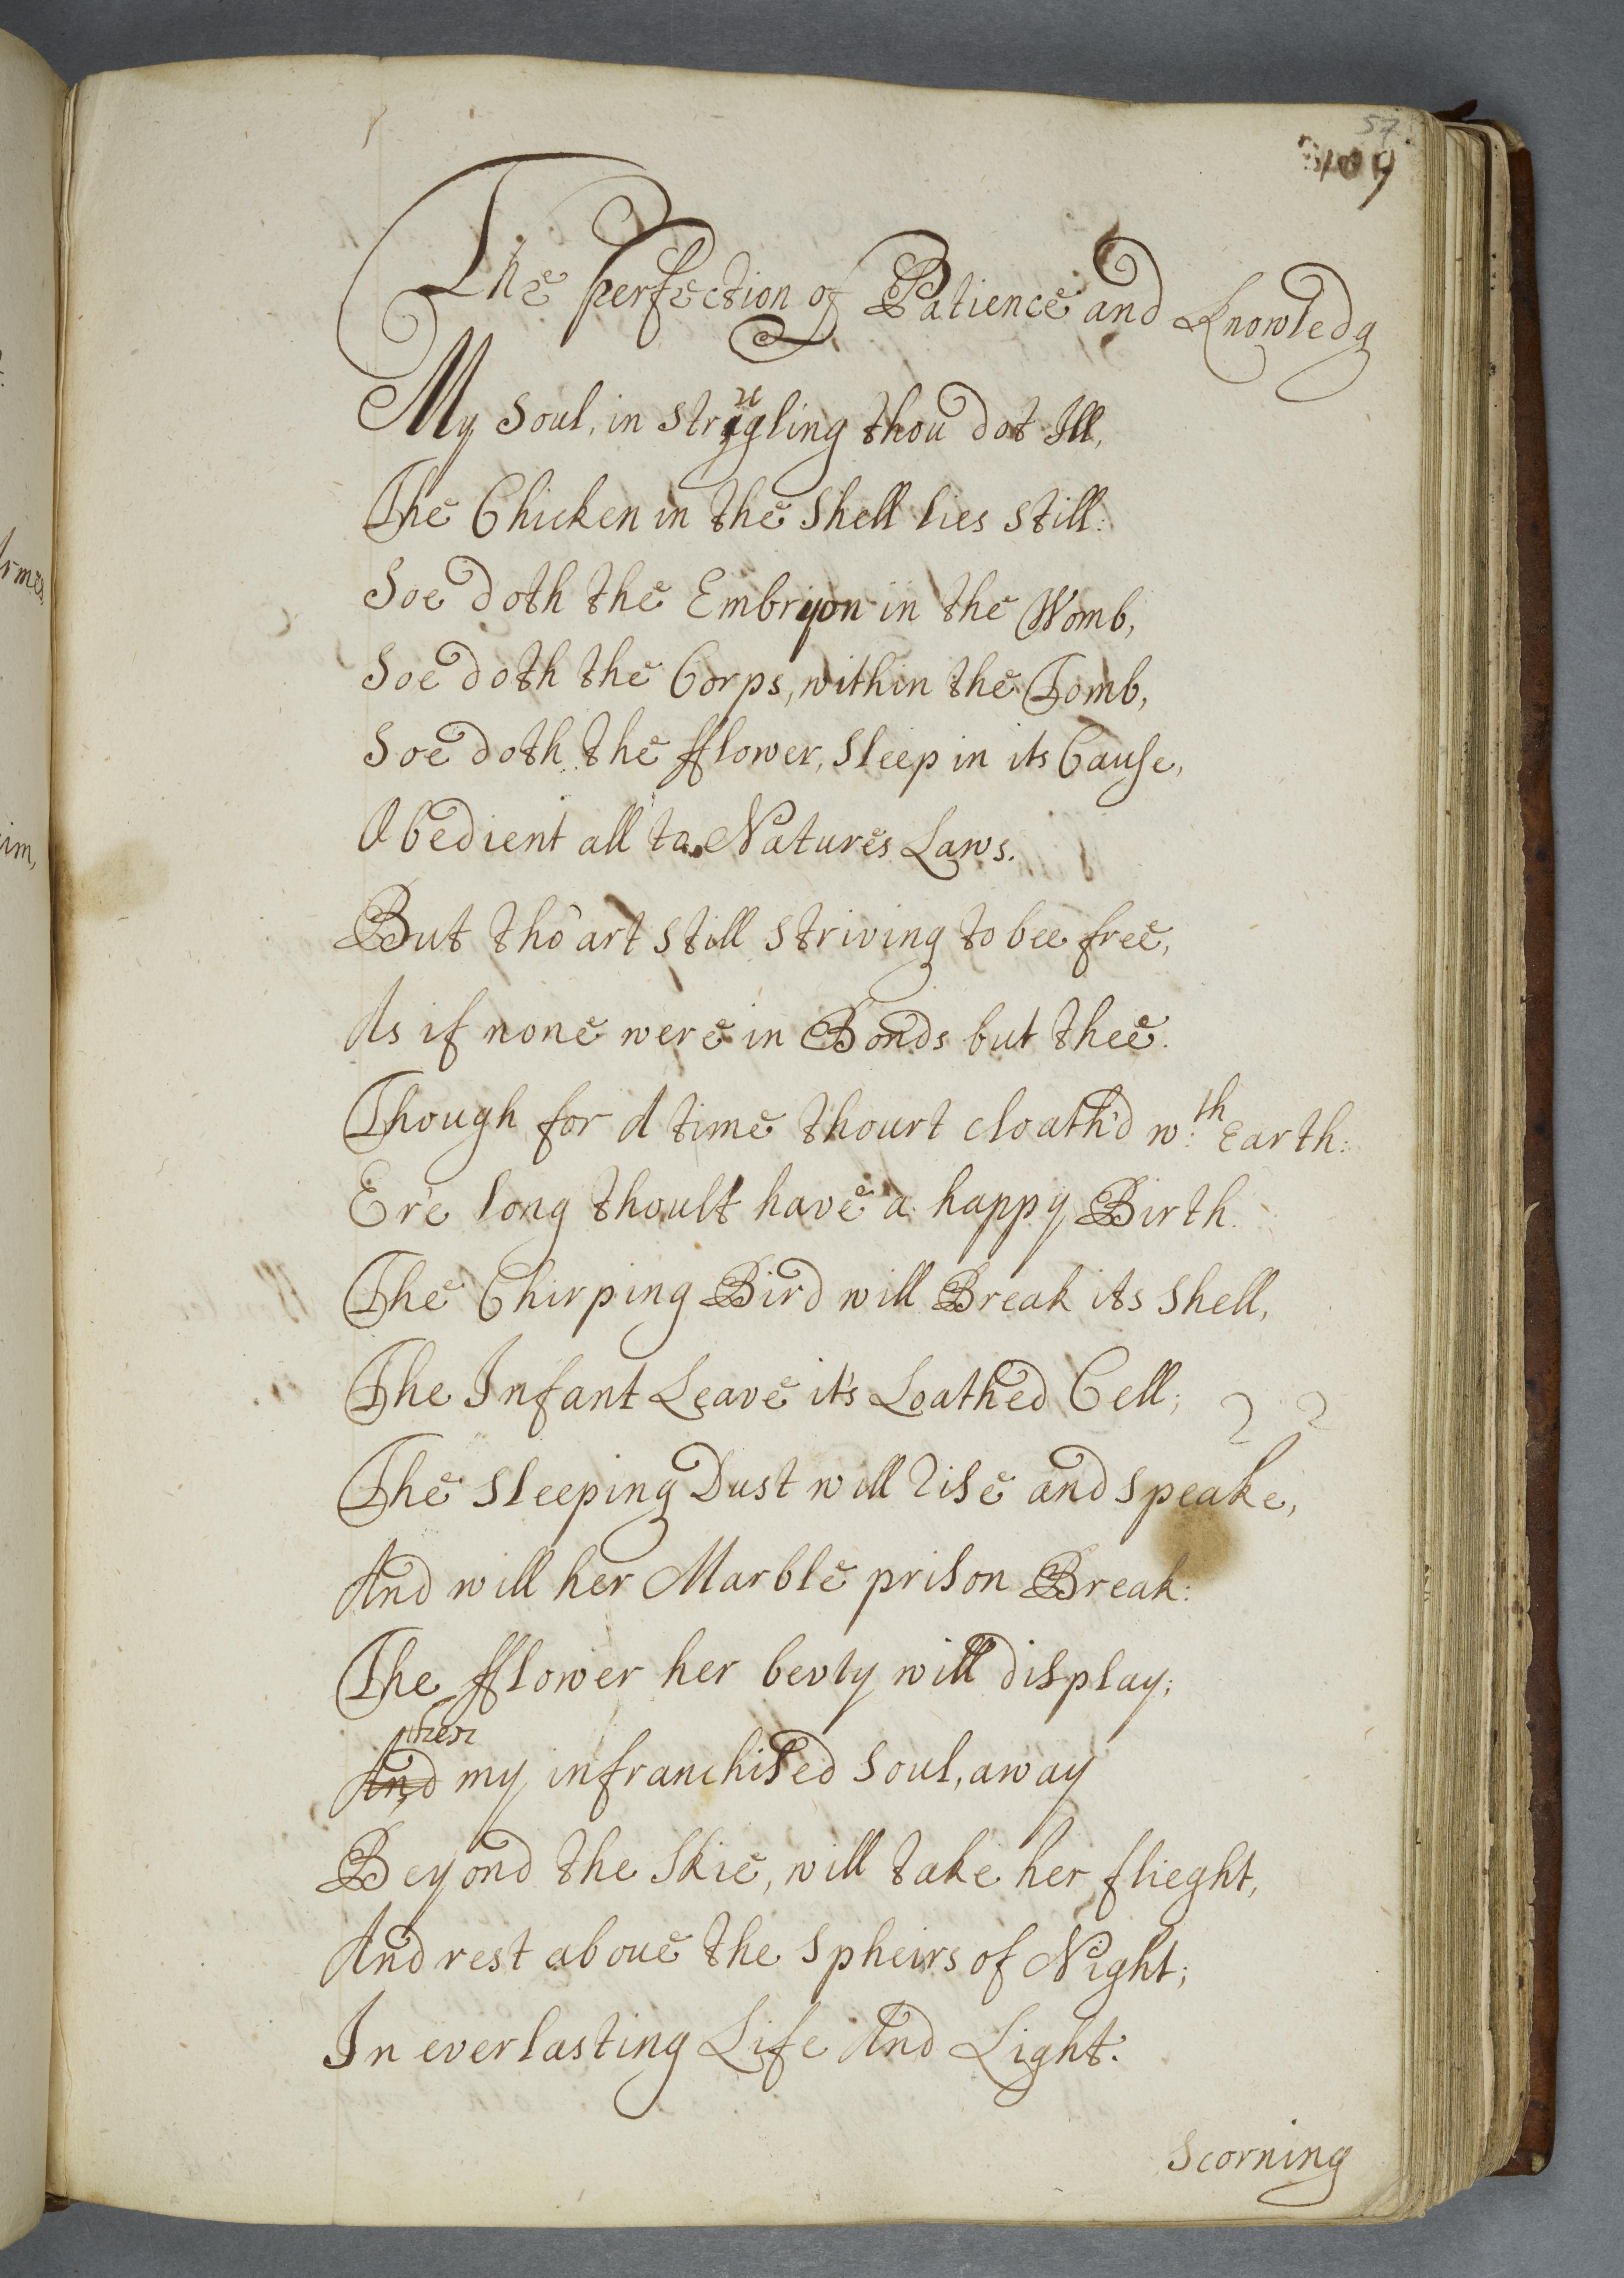 57
109
The perfection of Patience and Knowledg
My Soul, in Strugling thou dot Ill,
The Chicken in the Shell lies still:
Soe doth the Embryon in the Womb,
Soe doth the Corps, within the Tomb,
Soe doth the fflower, Sleep in its Cause,
Obedient all to Natures Laws.
But tho' art still striving to bee free,
As if none were in Bonds but thee.
Though for A time thourt cloath'd w:th Earth:
Er'e long thoult have a happy Birth.
The Chirping Bird will Break its Shell,
The Infant Leave it's Loathed Cell;
The Sleeping Dust will Rise and Speake,
And will her Marble prison Break:
The fflower her bevty will display;
then
And my infranchised Soul, away
Beyond the Skie, will take her flieght,
And rest aboue the Spheirs of Night;
In everlasting Life And Light.
Scorning